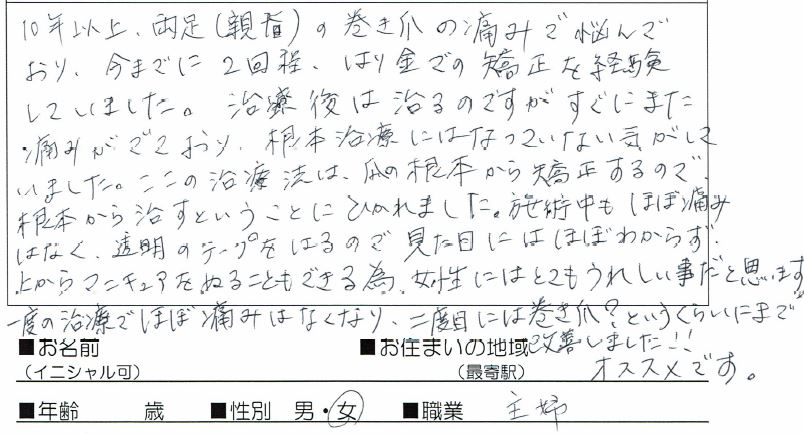 10年以上、両足(親指)の巻き爪の痛みで悩んで
おり、今までに2回程、はり金での矯正を経験
していました。治療後は治るのですがすぐにまた
痛みがでており、根本治療にはなっていない気がして
いました。ここの治療法は、爪の根本から矯正するので、
根本から治すということにひかれました。施術中もほぼ痛み
はなく、透明のテープをはるので見た目にはほぼわからず、
上からマニキュアをぬることもできる為、女性にはとてもうれしい事だと思います
一度の治療でほぼ痛みはなくなり、二度目には巻き爪?というくらいにまで
改善しました!!
オススメです。
■お名前 ■お住まいの地域
(イニシャル可) (最寄駅)
■年齢 歳 ■性別 男・女 ■職業 主婦